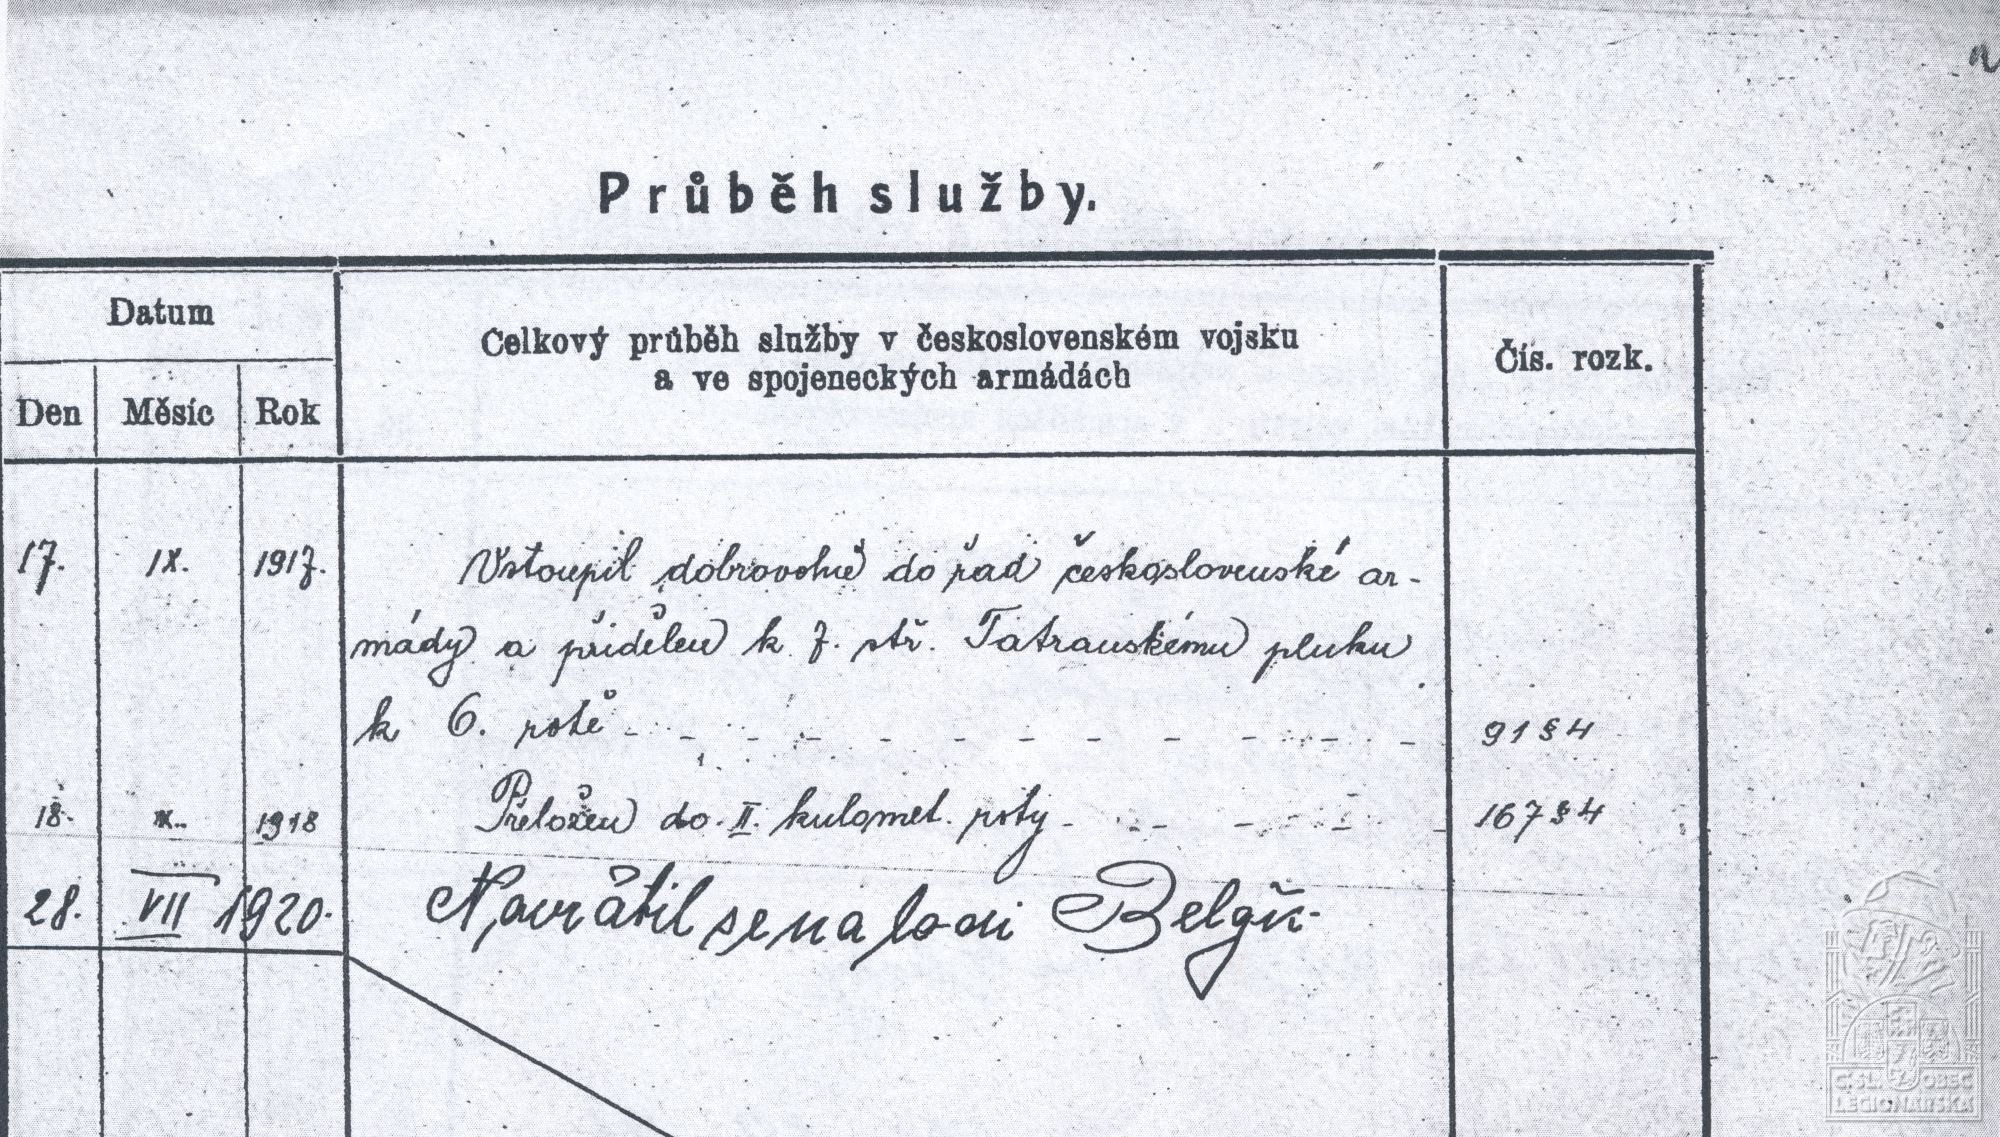 Průběh služby.
Datum
Celkový průběh služby v československém vojsku
a ve spojeneckých armádách
Čís. rozk.
Den Měsíc Rok
17. IX. 1917. Vstoupil dobrovolně do řad československé ar-
mády a přidělen k 7. stř. Tatranskému pluku
k 6. rotě 91 § 4
18. X. 1918 Přeložen do II. kulomet. roty 167 § 4
28. VII 1920. Navrátil se na lodi
Č.SL. OBEC
LEGIONÁŘSKÁ